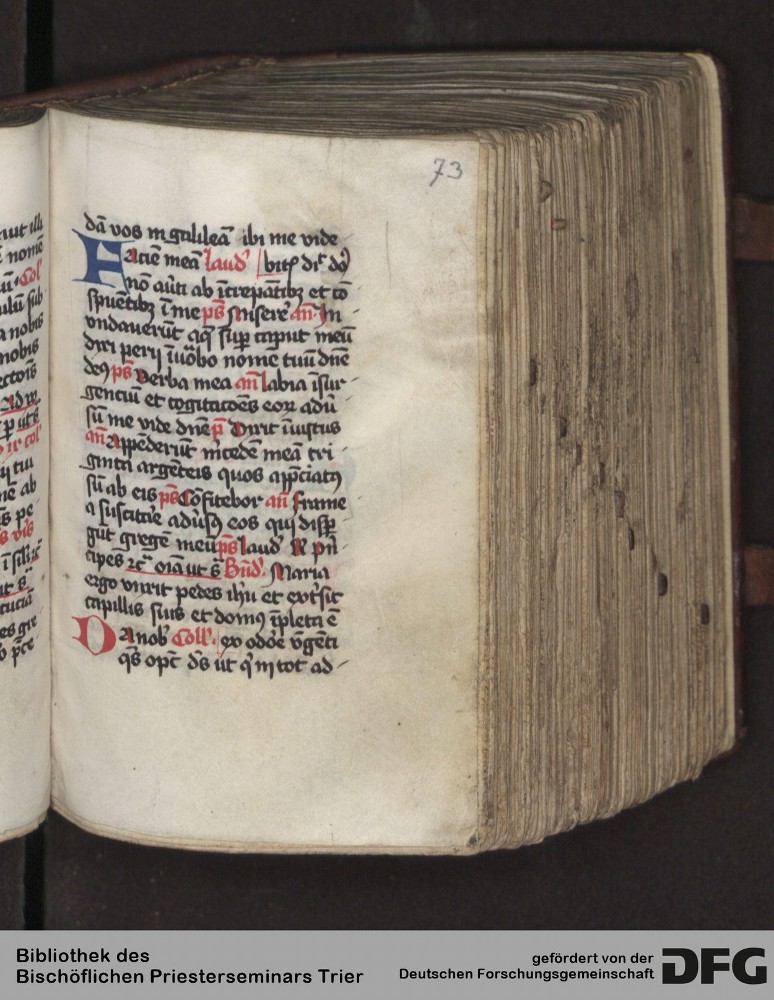 73
dā vos in galileā ibi me vide
Faciē meā laud' bitꝭ dt dn̄s
nō aūti ab īcrepātibꝫ et cō
spuētibꝫ ī me ps Miserē an̄ In
vndaverūt aq̄ suꝑ caput meū
dixi perij īuōbo nomē tuū dn̄e
deꝰ ps verba mea an̄ labia īsur
genciū et cogitacōēs eoꝝ adū
sū me vide dn̄e p̄ Dixit īiustus
an̄ Appēderūt m̄cedē meā tri
ginta argēteis quos app̄ciatꝰ
sū ab eis ps Cōfitebor an̄ frame
a suscitē adūsꝰ eos qui disꝑ
gūt gregē meū ps laud' ℟ pn̄
cipes ꝛc̄ oīa ut s̄ Bn̄d' Maria
ergo vnxit pedes ih̄u et ext̄sit
capillis suis et domꝰ īpleta ē
Da nob' Coll' ex odōe v̄gēti
qs̄ opc̄ ds̄ ut q' in tot ad
Bibliothek des
Bischöflichen Priesterseminars Trier
gefördert von der
Deutschen Forschungsgemeinschaft
DFG